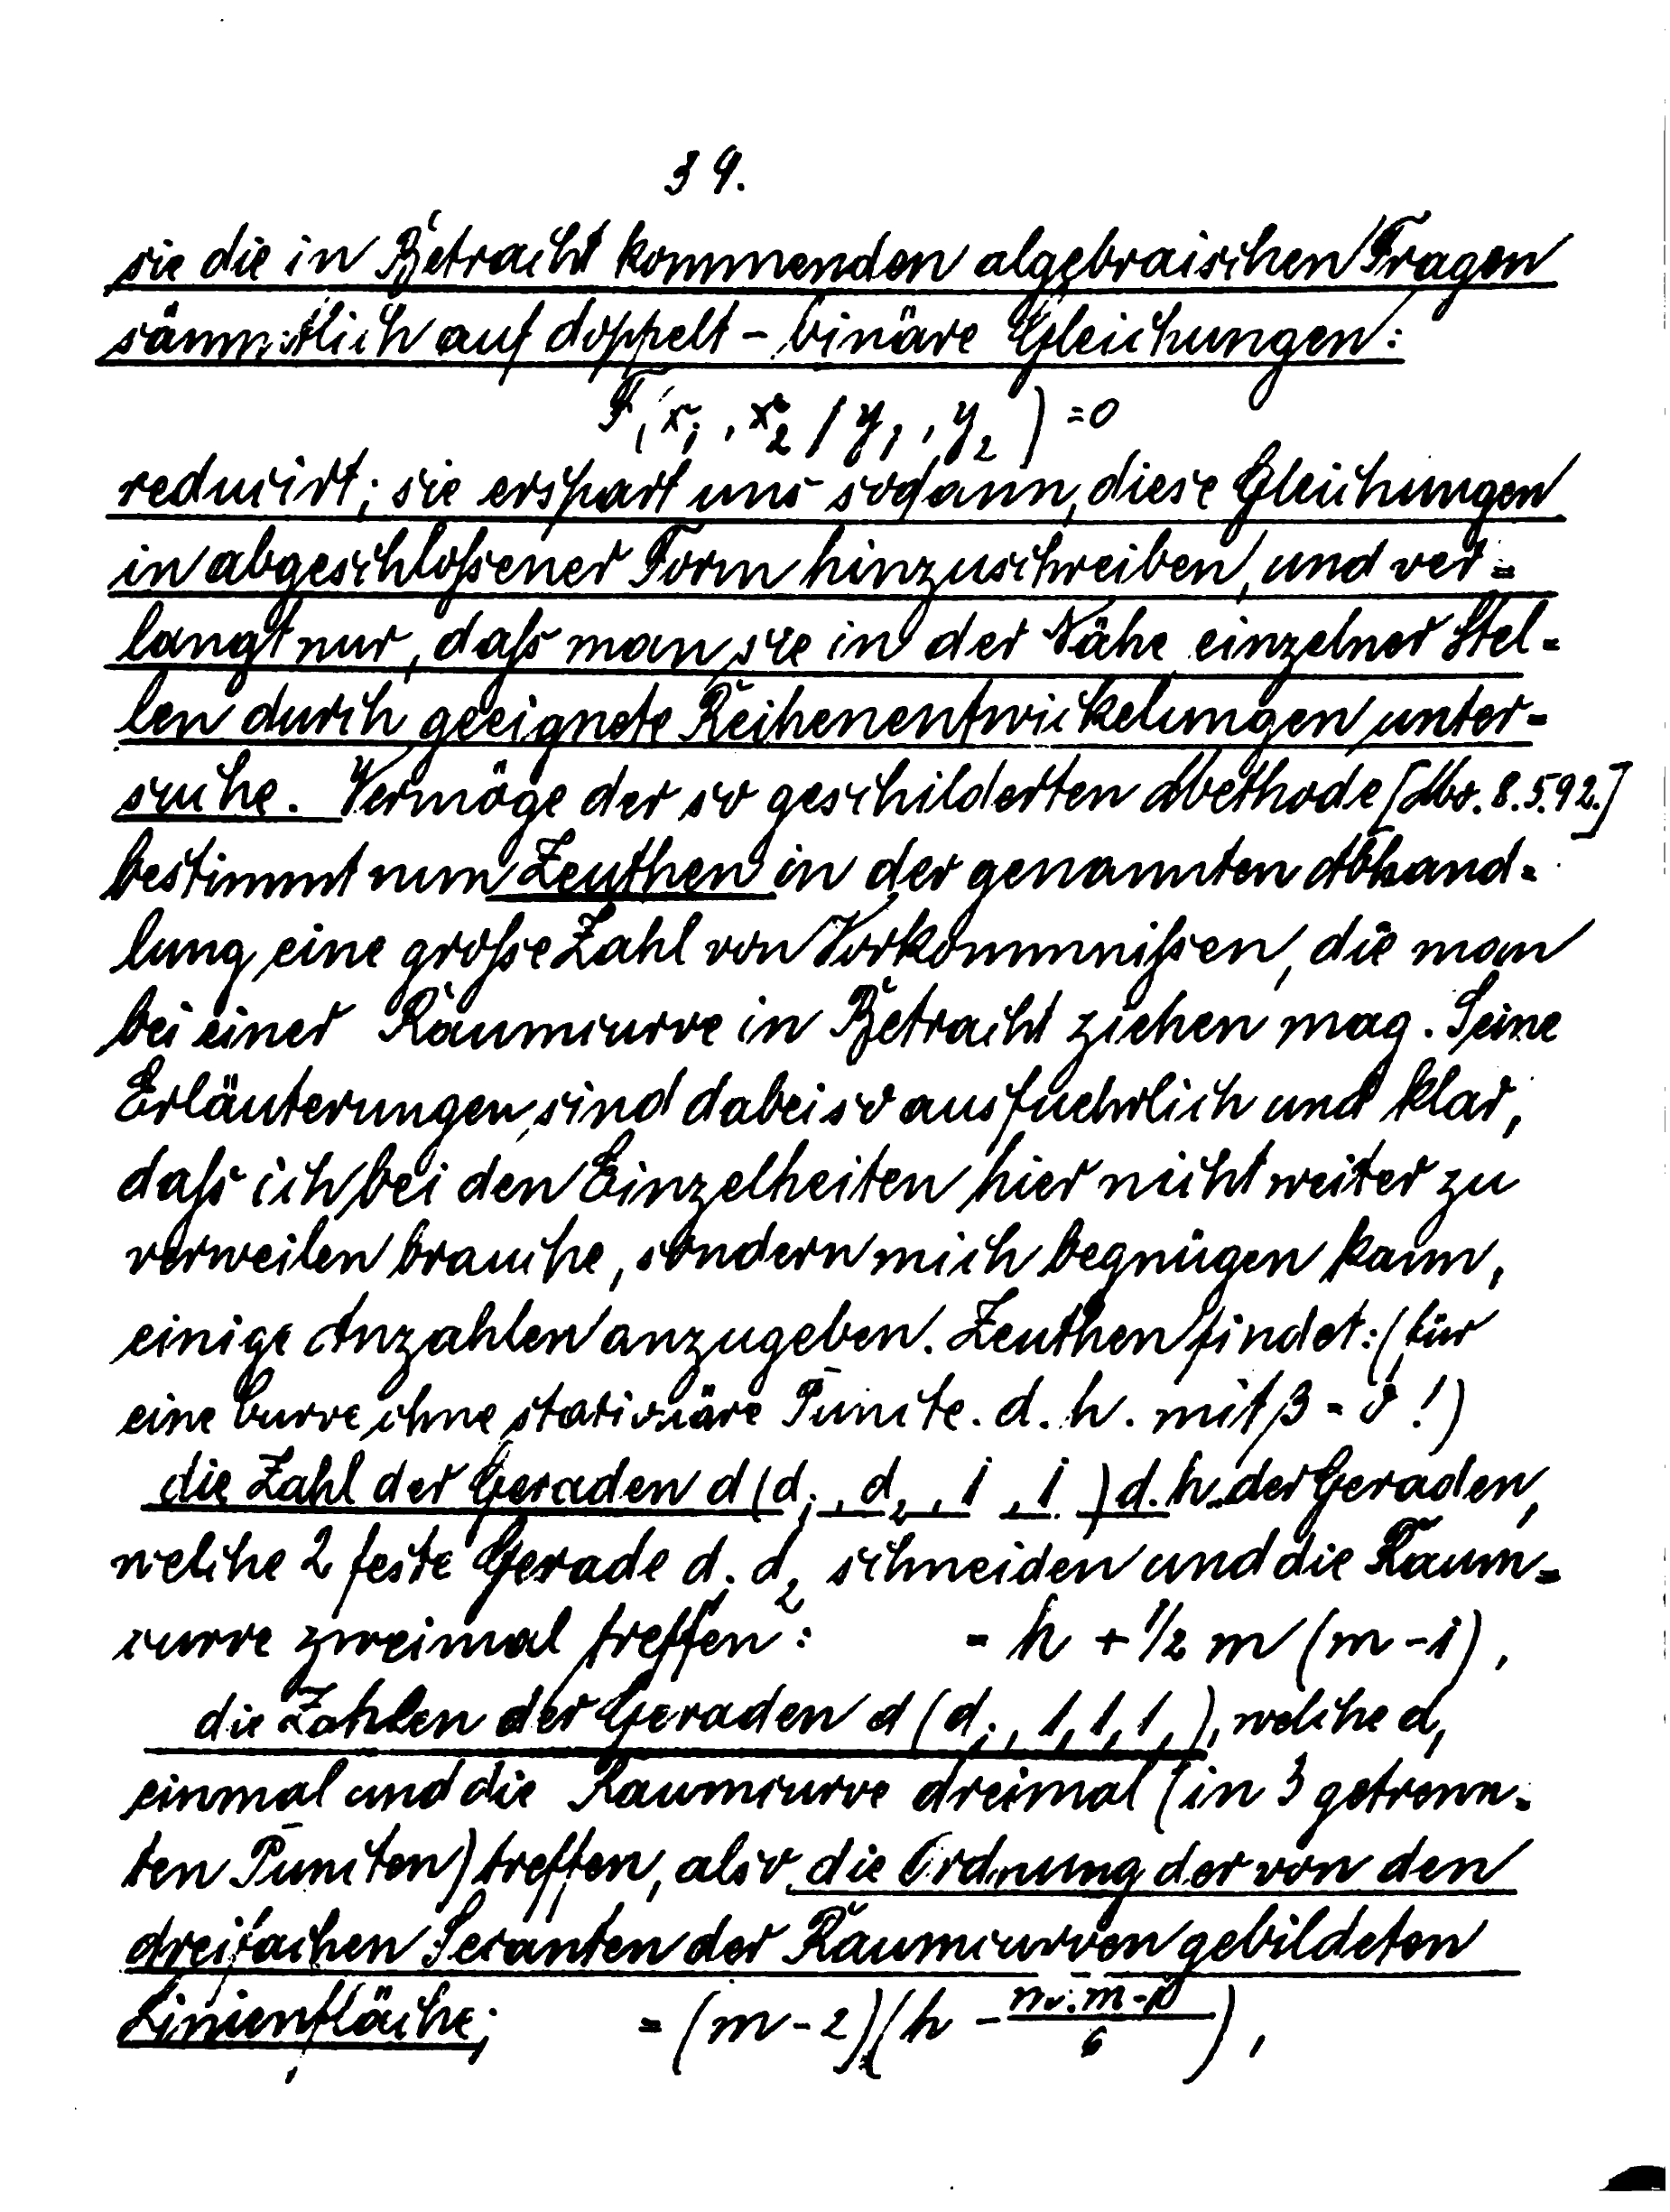 39.
sie die in Betracht kommenden algebraischen Fragen
sämmtlich auf doppelt-binäre Gleichungen:
F(x₁, x₂ / y₁, y₂) = 0
reducirt; sie erspart uns sodann, diese Gleichungen
in abgeschloßener Form hinzuschreiben, und ver=
langt nur, daß man sie in der Nähe einzelner Stel=
len durch geeignete Reihenentwickelungen unter=
suche. Vermöge der so geschilderten Methode [Mo. 8.5.92.]
bestimmt nun Zeuthen in der genannten Abhand=
lung eine große Zahl von Vorkommnißen, die man
bei einer Raumcurve in Betracht ziehen mag. Seine
Erläuterungen sind dabei so ausfuehrlich und klar,
daß ich bei den Einzelheiten hier nicht weiter zu
verweilen brauche, sondern mich begnügen kann,
einige Anzahlen anzugeben. Zeuthen findet: (für
eine Curve ohne stationäre Puncte. d. h. mit β = 0!)
die Zahl der Geraden d (d₁, d₂, 1, 1) d. h. der Geraden,
welche 2 feste Gerade d₁ d₂ schneiden und die Raum=
curve zweimal treffen: = h + 1/2 m (m-1),
die Zahlen der Geraden d (d₁, 1, 1, 1,), welche d₁
einmal und die Raumcurve dreimal (in 3 getrenn=
ten Puncten) treffen, also die Ordnung der von den
dreifachen Secanten der Raumcurven gebildeten
Linienfläche; = (m-2)(h - m(m-1)/6),